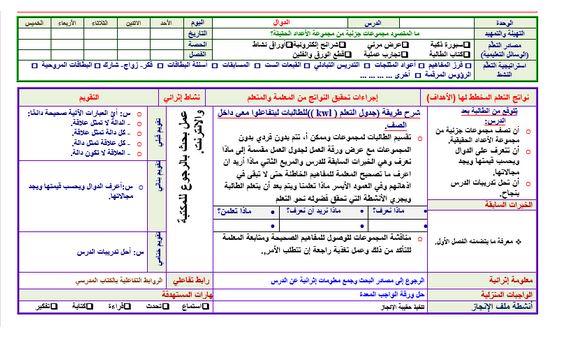 الوحدة
الدرس
الدوال
اليوم
الأحد
الاثنين
الثلاثاء
الأربعاء
الخميس
التهيئة والتمهيد
ما المقصود مجموعات جزئية من مجموعة الأعداد الحقيقة؟
التاريخ
مصادر التعلم
(الوسائل التعليمية)
سبورة ذكية
عرض مرئي
شرائح إلكترونية
أوراق نشاط
الحصة
كتاب الطالبة
تجارب عملية
قطع الورق والفلين
الفصل
استراتيجية التعلم
النشط
فرز المفاهيم
أعواد المثلجات
التدريس التبادلي
القبعات الست
المسابقات
أسئلة البطاقات
فكر- زواج- شارك
البطاقات المروحية
الرؤوس المرقمة
أخرى ... ... ...
نواتج التعلم المخطط لها (الأهداف)
إجراءات تحقيق النواتج من المعلمة والمتعلم
نشاط إثرائي
التقويم
يتوقع من الطالبة بعد
الدرس:
أن تصف مجموعات جزئية من
مجموعة الأعداد الحقيقية.
أن تتعرف على الدوال
ويحسب قيمتها ويجد
مجالاتها.
أن تحل تدريبات الدرس
بنجاح.
الخبرات السابقة
معرفة ما يتضمنه الفصل الأول.
شرح طريقة (جدول التعلم ( kwl ))للطالبات ليتفاعلوا معي داخل
الصف.
تقسيم الطالبات لمجموعات وممكن أ، تتم بدون فردي بدون
المجموعات مع عرض ورقة العمل لجدول العمل مقسمة إلى ماذا
نعرف وهي الخبرات السابقة للدرس والمربع الثاني ماذا أريد ان
اعرف ما تصحيح المعلمة للمفاهيم الخاطئة حتى لا تبقى في
اذهانهم وفي العمود الأيسر ماذا تعلمنا ويتم بعد أن يتعلم الطالبة
ويجري الأنشطة التي تحقق فضوله نحو التعلم
ماذا نعرف؟
ماذا نريد ان نعرف؟
ماذا تعلمن؟
مناقشة المجموعات للوصول للمفاهيم الصحيحة ومتابعة المعلمة
للتأكد من ذلك وعمل تغذية راجعة إن تتطلب الأمر.
عمل بحث بالرجوع للمكتبة
والانترنت.
تقويم قبلي
س: أي العبارات الآتية صحيحة دائمًا:
- الدالة لا تمثل علاقة.
- كل دالة تمثل علاقة.
- كل علاقة تمثل دالة.
- العلاقة لا تكون دالة.
تقويم بنائي
س:أعرف الدوال ويحسب قيمتها ويجد
مجالاتها.
تقويم ختامي
س: أحل تدريبات الدرس
معلومة إثرائية
الرجوع إلى مصادر البحث وجمع معلومات إثرائية عن الدرس
رابط تفاعلي
الروابط التفاعلية بالكتاب المدرسي
الواجبات المنزلية
حل ورقة الواجب المعدة
مهارات المستهدفة
أنشطة ملف الإنجاز
تنفيذ حقيبة الإنجاز
استماع
تحدث
قراءة
كتابة
تفكير